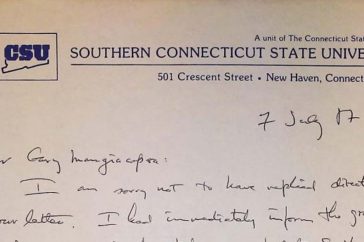 A unit of The Connecticut Stat
CSU
SOUTHERN CONNECTICUT STATE UNIVE
501 Crescent Street • New Haven, Connect
7 July 87
r Gary Mangiacopra:
I am sorry not to have replied direct
our letter. I had immediately inform the gr